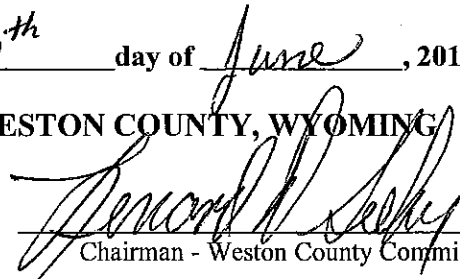 th day of June, 201
ESTON COUNTY, WYOMING
Chairman - Weston County Commi